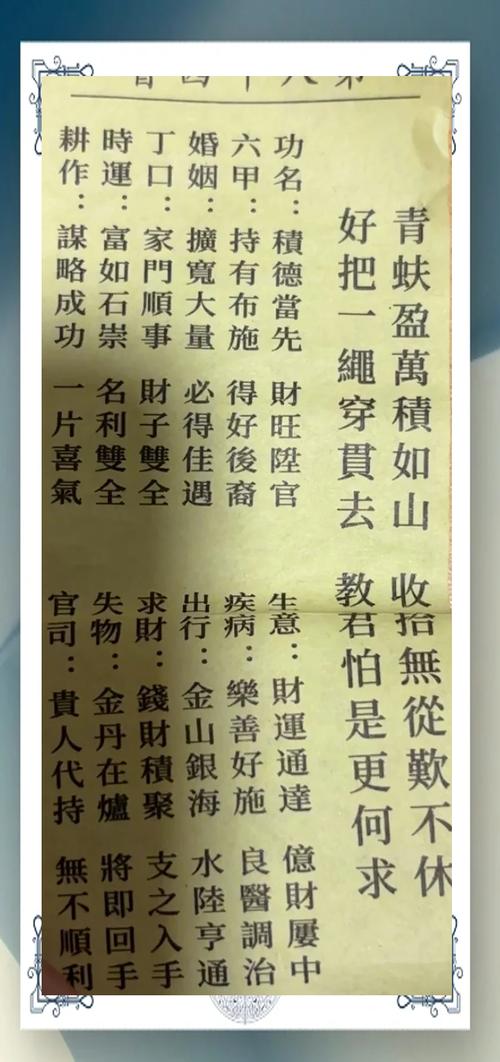 青蚨盈萬積如山 收拾無從歎不休
好把一繩穿貫去 教君怕是更何求
功名：積德當先 財旺陞官
六甲：持有布施 得好後裔
婚姻：擴寬大量 必得佳遇
丁口：家門順事 財子雙全
時運：富如石崇 名利雙全
耕作：謀略成功 一片喜氣
生意：財運通達 億財屢中
疾病：樂善好施 良醫調治
出行：金山銀海 水陸亨通
求財：錢財積聚 支之入手
失物：金丹在爐 將即回手
官司：貴人代持 無不順利